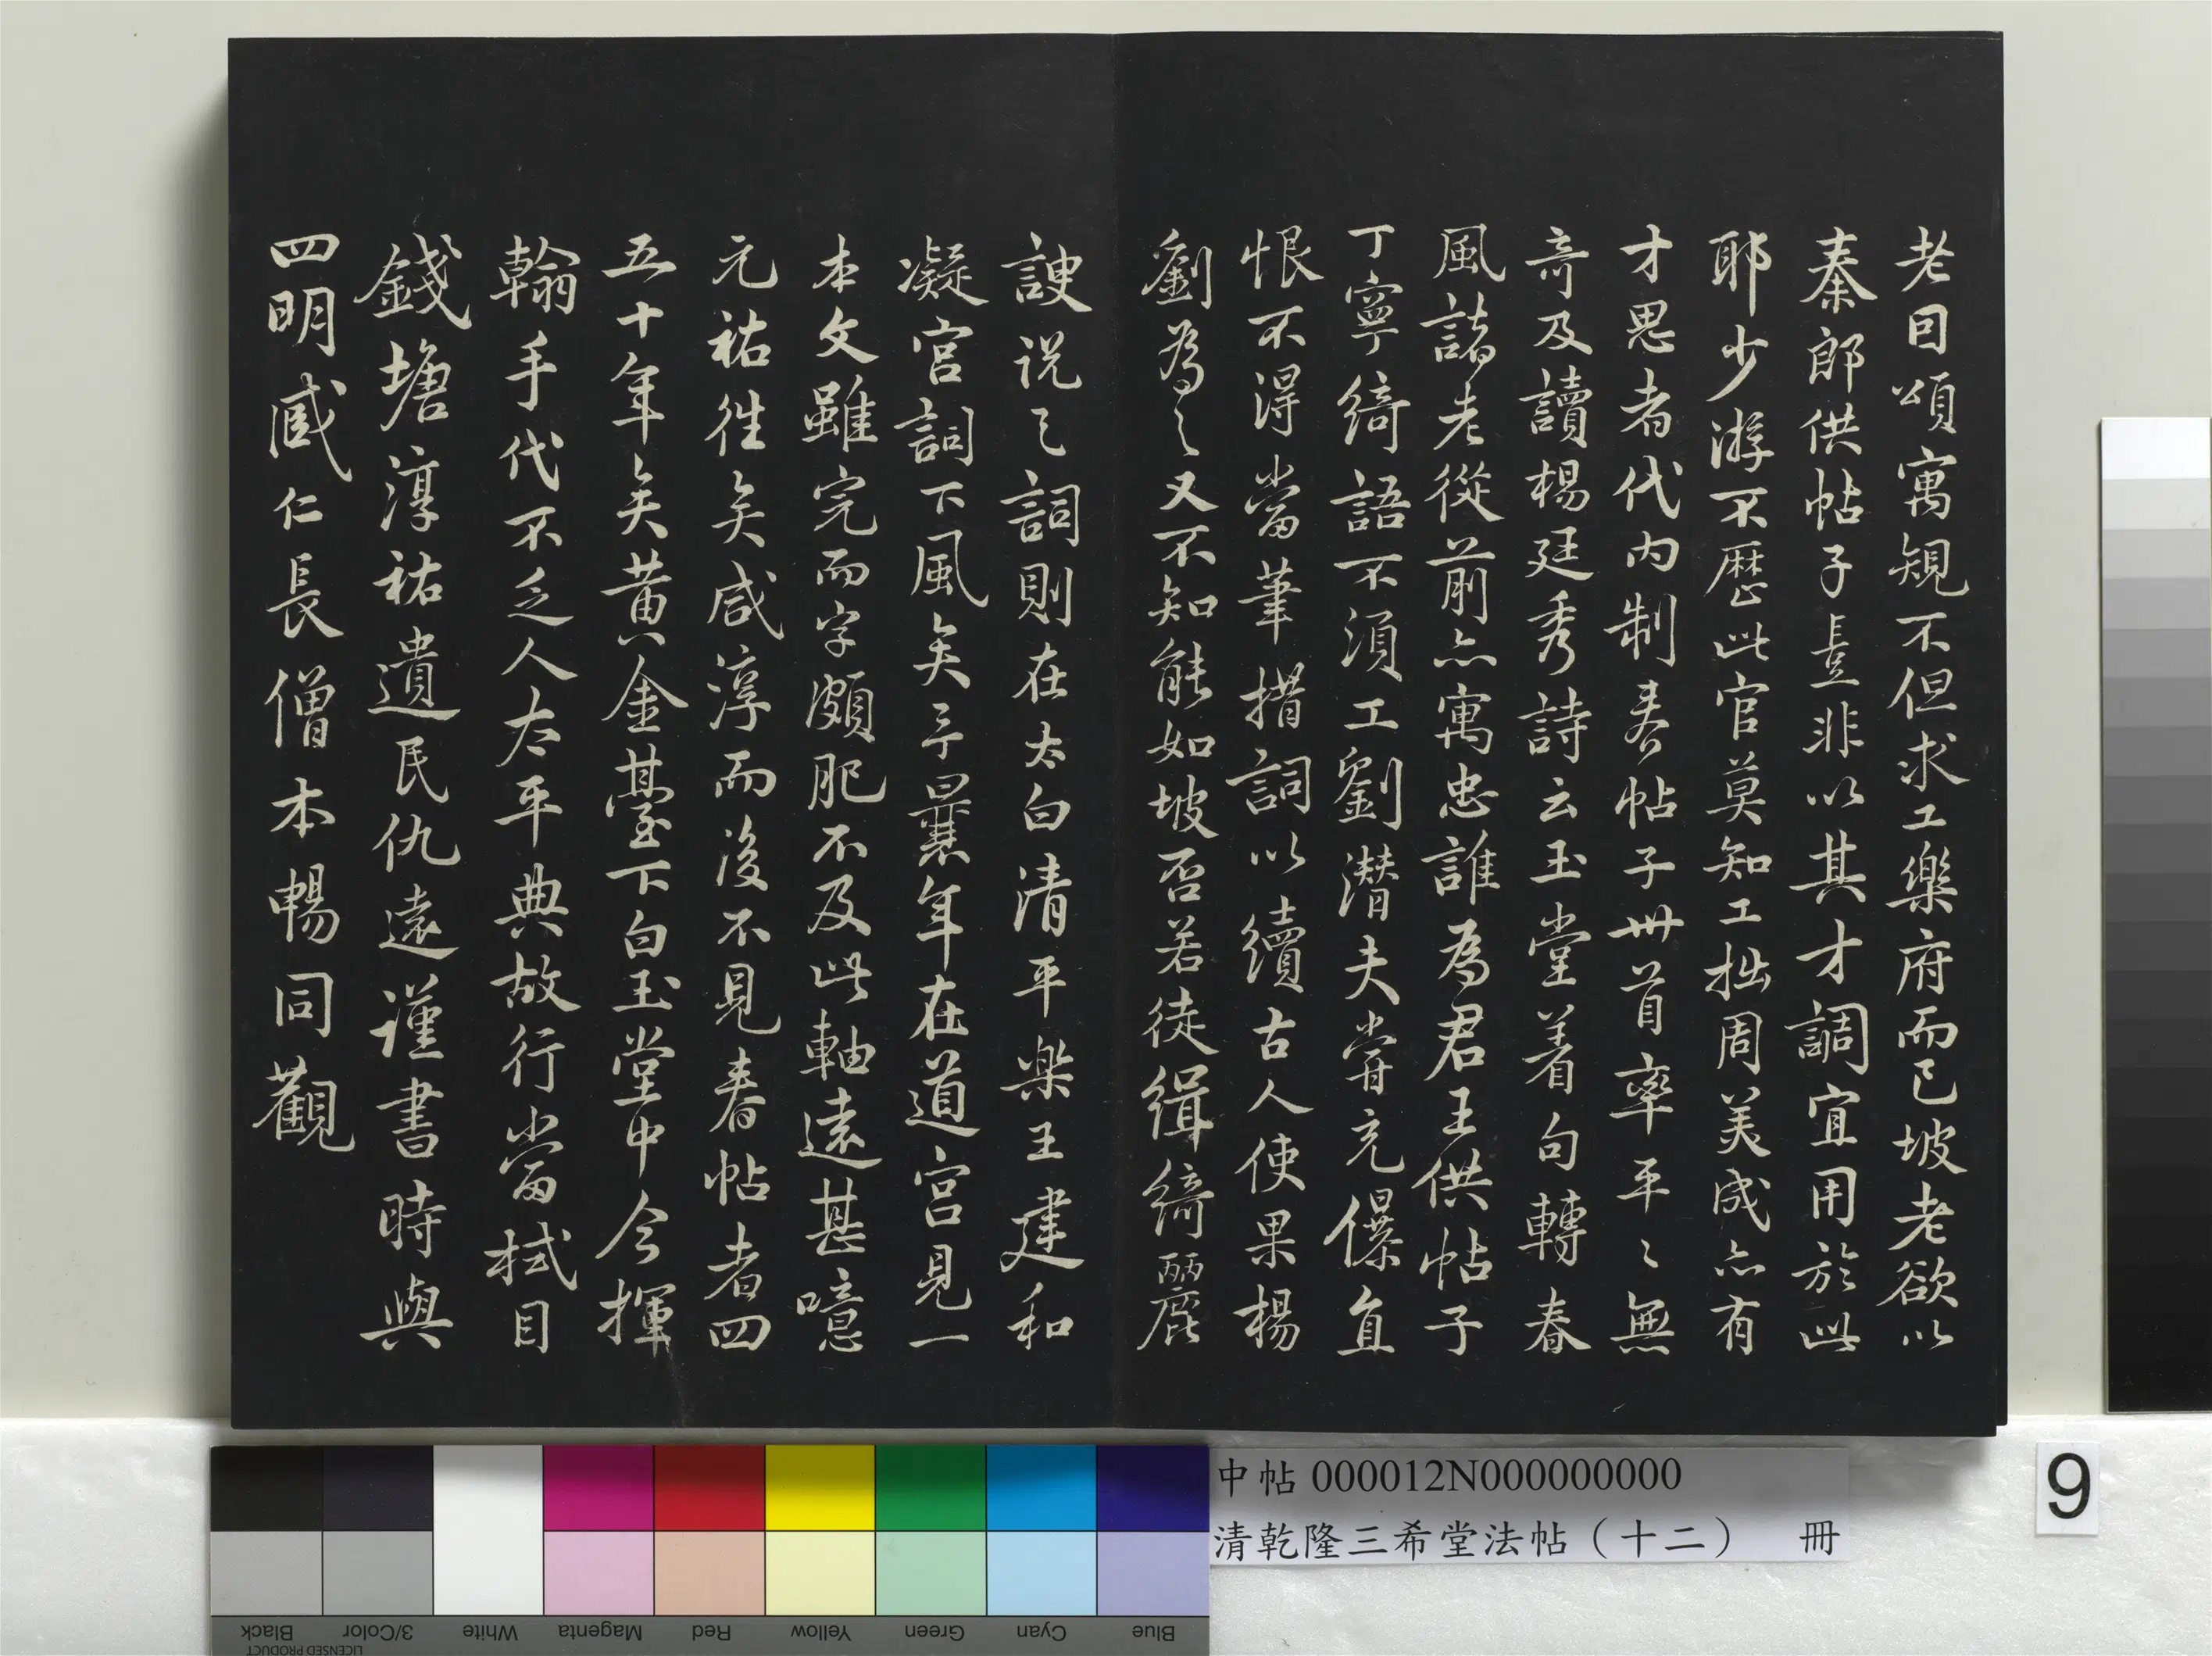 老因頌寓規不但求工樂府而已坡老欲以
秦郎供帖子豈非以其才調宜用於此
耶少游不歷此官莫知工拙周美成亦有
才思者代內制春帖子卅首率平〻無
奇及讀楊廷秀詩云玉堂着句轉春
風諸老從前亦寓忠誰為君王供帖子
丁寧綺語不須工劉潛夫嘗充僕直
恨不得當筆措詞以續古人使果楊
劉為之又不知能如坡否若徒緝綺麗
諛說之詞則在太白清平樂王建和
凝宮詞下風矣予曩年在道宮見一
本文雖完而字頗肥不及此軸遠甚噫
元祐往矣咸淳而後不見春帖者四
五十年矣黃金臺下白玉堂中今揮
翰手代不乏人太平典故行當拭目
錢塘淳祐遺民仇遠謹書時與
四明臧仁長僧本暢同觀
中帖 000012N000000000
清乾隆三希堂法帖（十二） 冊
9
Black 3/Color White Magenta Red Yellow Green Cyan Blue
LICENSED PRODUCT